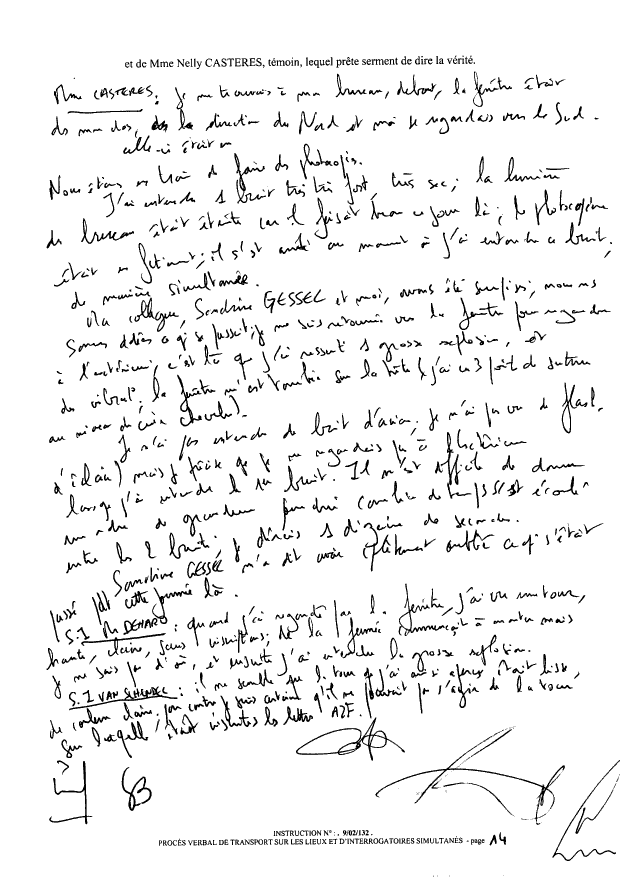 et de Mme Nelly CASTERES, témoin, lequel prête serment de dire la vérité.
Mme CASTERES : je me trouvais à mon bureau, debout, la fenêtre était
ds mon dos, ds la direction du Nord et moi je regardais vers le Sud.
elle-ci était en
Nous étions en train de faire des photocopies.
J'ai entendu 1 bruit très très fort, très sec ; la lumière
du bureau était éteinte car il faisait beau ce jour là ; le photocopieur
était en fctmt ; il s'est arrêté au moment où j'ai entendu ce bruit,
de manière simultanée.
Ma collègue, Sandrine GESSEL et moi, avons été surprises, nous ns
sommes ce qi se passait, je me suis retournée vers la fenêtre pour regarder
à l'extérieur, c'est là que j'ai ressenti 1 grosse explosion, et
des vibrat° ; la fenêtre m'est tombée sur la tête (j'ai eu 3 points de suture
au niveau du cuir chevelu).
Je n'ai pas entendu de bruit d'avion, je n'ai pas vu de flash,
d'éclair) mais je précise que je ne regardais pas à l'extérieur
lorsque j'ai entendu le 1er bruit. Il m'est difficile de donner
un ordre de grandeur pour dire combien de temps s'est écoulé
entre les 2 bruits, je dirais 1 dizaine de secondes.
Sandrine GESSEL m'a dit avoir complètement oublié ce qi s'était
passé pdt cette journée là.
S.I Me DEHARO : quand j'ai regardé par la fenêtre, j'ai vu une tour,
haute, claire, sans inscriptions ; de la fumée commençait à monter mais
je ne sais pas d'où, et ensuite j'ai entendu la grosse explosion.
S.I VAN SCHENDEL : il me semble que la tour que j'ai ainsi aperçue était lisse,
de couleur claire, par contre je suis certaine qu'il ne pouvait pas s'agir de la tour
sur laquelle étaient inscrites les lettres AZF.
INSTRUCTION N° : . 9/02/132 .
PROCÈS VERBAL DE TRANSPORT SUR LES LIEUX ET D'INTERROGATOIRES SIMULTANÉS - page 14